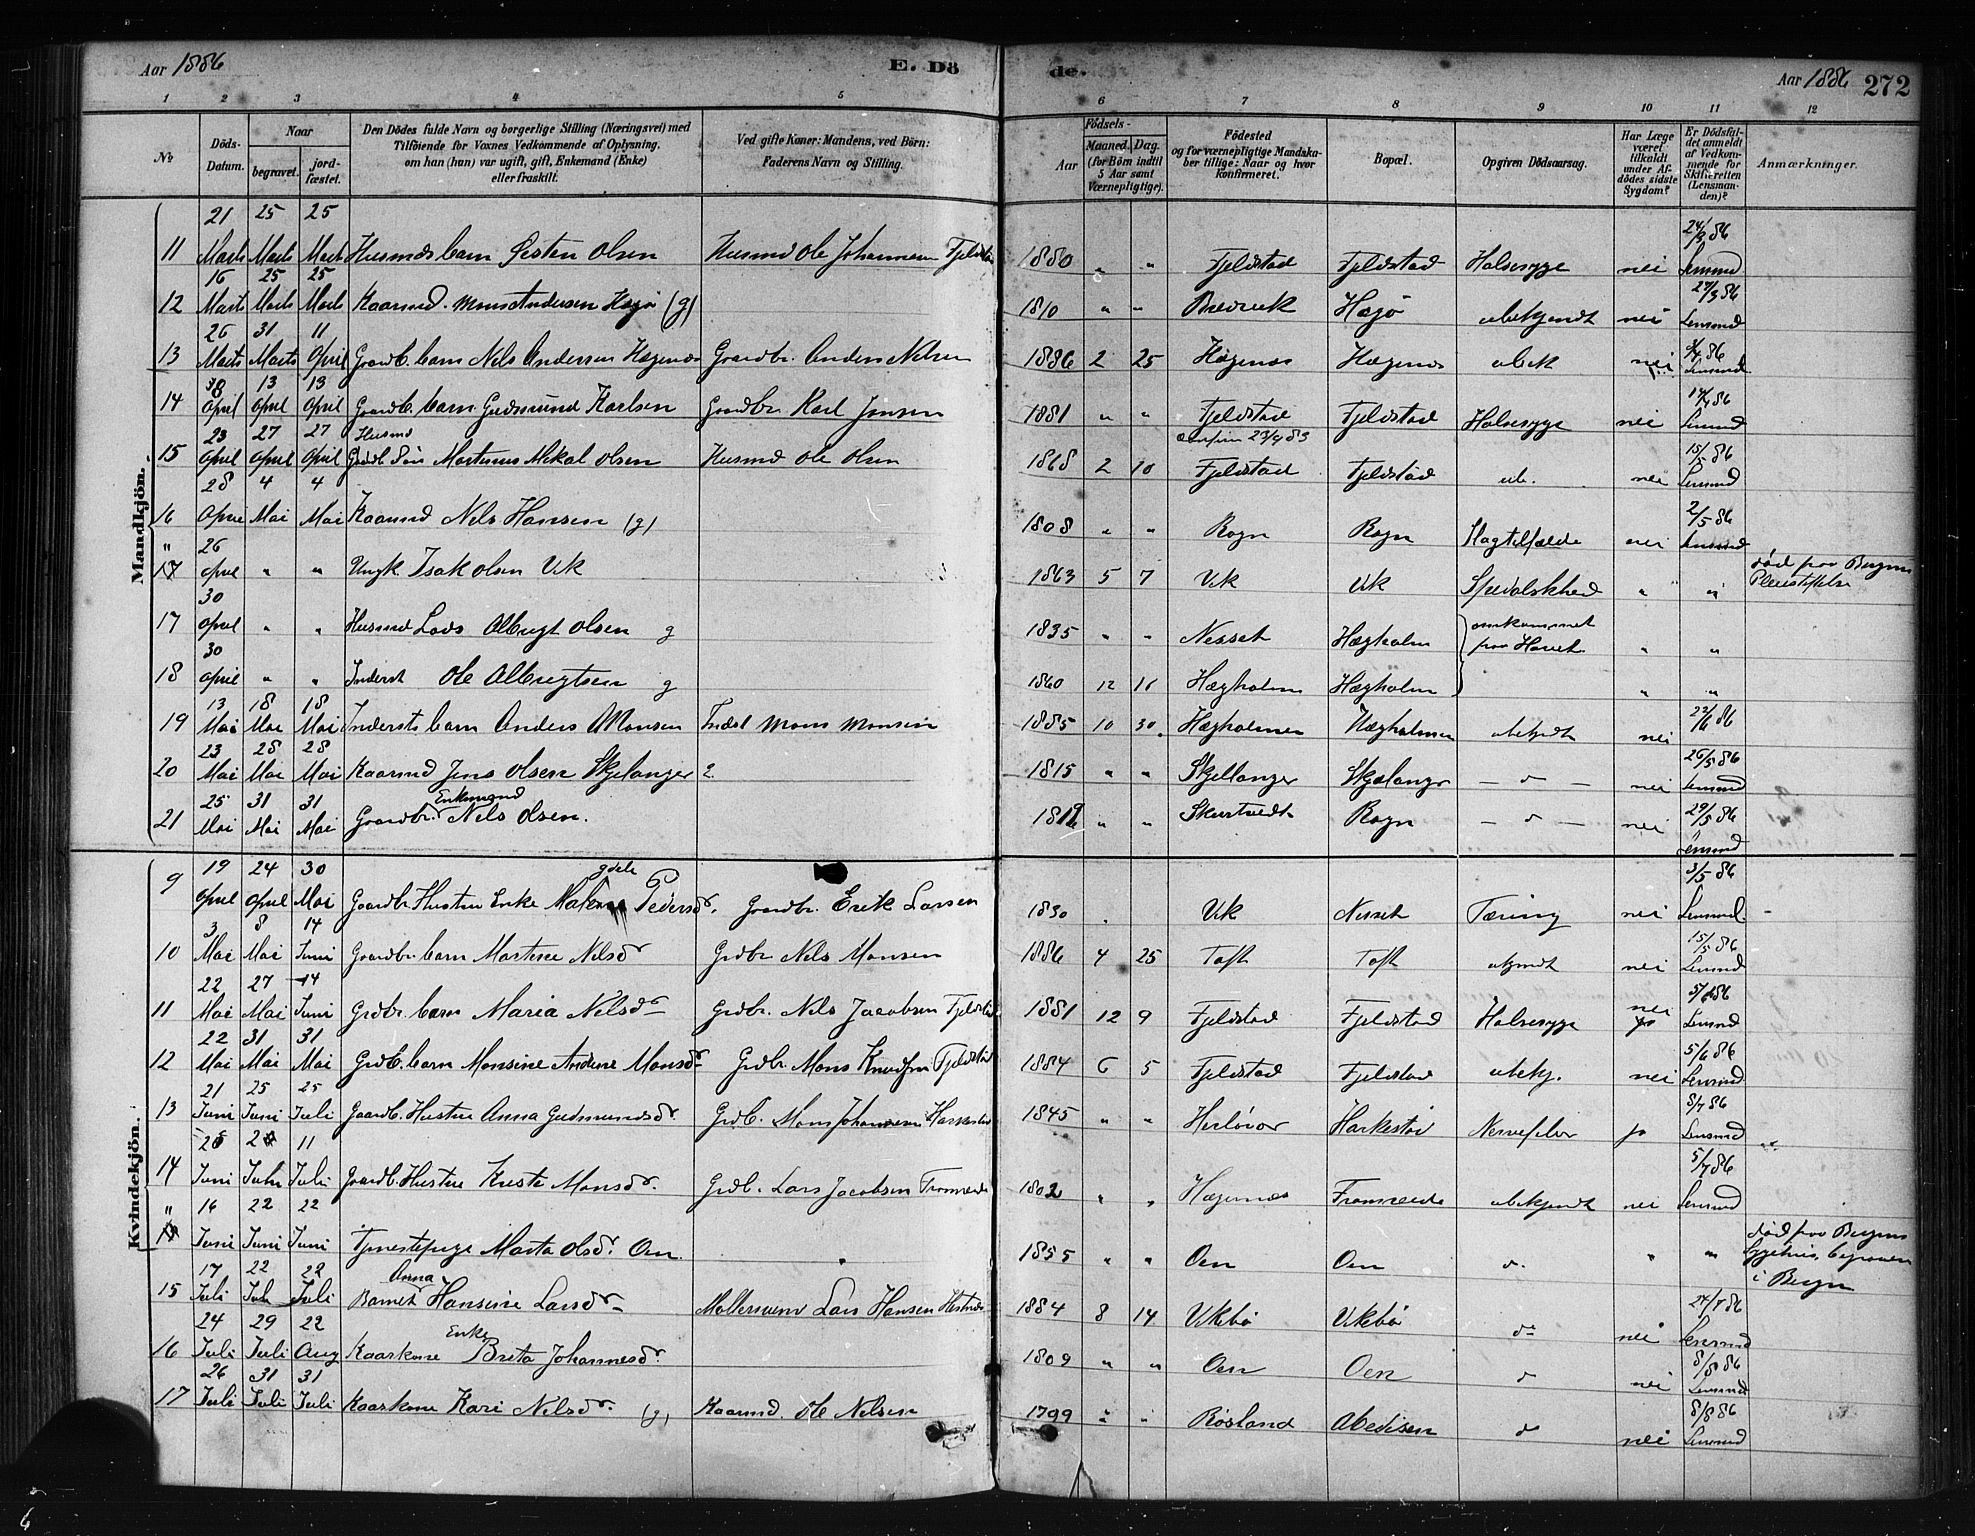 Aar 1886
E. Dö
de.
Aar 1886 272
1 2 3 4 5 6 7 8 9 10 11 12
No
Döds-
Datum.
Naar
begravet.
jord-
fæstet.
Den Dödes fulde Navn og borgerlige Stilling (Næringsvei) med
Tilföiende for Voxnes Vedkommende af Oplysning,
om han (hun) var ugift, gift, Enkemand (Enke)
eller fraskilt.
Ved gifte Koner: Mandens, ved Börn:
Faderens Navn og Stilling.
Födsels-
Aar
Maaned.
Dag.
(for Börn indtil
5 Aar samt
Værnepligtige).
Födested
og for værnepligtige Mandska-
ber tillige: Naar og hvor
konfirmeret.
Bopæl.
Opgiven Dödsaarsag.
Har Læge
været
tilkaldt
under Af-
dödes sidste
Sygdom?
Er Dödsfal-
det anmeldt
af Vedkom-
mende for
Skifteretten
(Lensman-
den)?
Anmærkninger.
Mandkjön.
21 25 25 24/3 86
11 Marts Marts Marts Husmds barn Sesten Olsen Husmd Ole Johannesen Fjeldstad 1880 " " Fjeldstad Fjeldstad Halsesyge nei Lensmd
16 25 25 27/3 86
12 Marts Marts Marts Kaarmd. Mons Andersen Hægø (g) 1810 " " Bredvik Hægø ubekjendt nei Lensmd
26 31 11
13 Marts Marts April Gaardb. barn Nels Andersen Hægenæs Gaardbr. Anders Nelsen 1886 2 25 Hægenæs Hægenæs ubek nei Lensmd
8 13 13
14 April April April Gaardb. barn Gudmund Karlsen Gaardbr. Karl Jensen 1881 " " Fjeldstad Fjeldstad Halsesyge nei Lensmd
23 27 27 Husmd 15/5 86
15 April April April Søn Martinus Mikal Olsen Husmd Ole Olsen 1868 2 10 Fjeldstad Fjeldstad ub. nei Lensmd
28 4 4 2/5 86
16 April Mai Mai Kaarmd Nels Hansen (g) 1808 " " Rogn Rogn Slagtilfælde nei Lensmd
" 26 død paa Bergens
17 April " " Ungk Isak Olsen Vik 1863 5 7 Vik Vik Spedalskhed " " Pleiestiftelse
30
17 April " " Husmd Lads Albrigt Olsen g 1835 " " Nesset Hægholm omkommet paa Havet " "
30
18 April " " Inderst Ole Albrigtsen g 1860 12 16 Hægholm Hægholm " "
13 18 18 22/6 86
19 Mai Mai Mai Inderst barn Anders Monsen Indst Mons Monsen 1885 10 30 Hægholmen Hægholmen ubekjendt nei
23 28 28 26/5 86
20 Mai Mai Mai Kaarmd Jens Olsen Skjelanger 1815 " " Skjellanger Skjelanger — d — nei Lensmd
25 31 31 Enkemand 29/5 86
21 Mai Mai Mai Gaardbr. Nels Olsen. " " Rogn — d — nei Lensmd
Kvindekjön.
19 24 30 3/5 86
9 April April Mai Gaardbr. Hustru Enke Pedersdr. Gaardbr. Erik Larsen 1830 Vik Nesset Tæring nei Lensmd.
3 8 14 15/5 86
10 Mai Mai Juni Gaardbr. barn Martine Nelsdr Grdbr. Nels Monsen 1886 4 25 Toft Toft nei Lensmd
22 27 14
11 Mai Mai Juni Grdbr. barn Maria Nelsdr Grdbr. Nels Jacobsen Fjeldstad 1881 12 9 Fjeldstad Fjeldstad Halsesyge nei Lensmd
22 31 31 5/6 86
12 Mai Mai Mai Grdb. barn Monsine Andrine Monsdr Grdb. Mons Knudsen Fjeldstad 1884 6 5 Fjeldstad Fjeldstad ubekj. nei Lensmd
21 25 25 8/7 86
13 Juni Juni Juli Gaardb. Hustru Anna Gudmundsdr. Grdb. Mons Johannesen Harkestad 1845 " " Herløvær Harkestad Nervefeber ja Lensmd
11 5/7 86
14 Juni Juli Gaardb. Hustru Kristi Monsdr. Grdb. Lars Jacobsen Fromreide 1802 " " Hægenæs Fromreide ubekjendt nei Lensmd
" 16 22 22 død paa Bergens
Juni Juni Juni Tjenestepige Marta Olsdr. Oen " 1855 " " Oen Oen d. " " Sygehus, begraven
i Bergen
17 22 22 Anna
15 Juli Juli Juli Barnet Hansine Larsdr Møllersvend Lars Hansen 1884 8 14 Vikebø Vikebø do nei Lensmd
24 29 22 Enke 8/8 86
16 Juli Juli Aug Kaarkone Brita Johannesdr. 1809 " " Oen Oen d nei Lensmd
26 31 31 8/8 86
17 Juli Juli Juli Kaarkone Kari Nelsdr. (g) Kaarmd. Ole Nelsen 1799 " " Røsland Abedisen d nei Lensmd
6